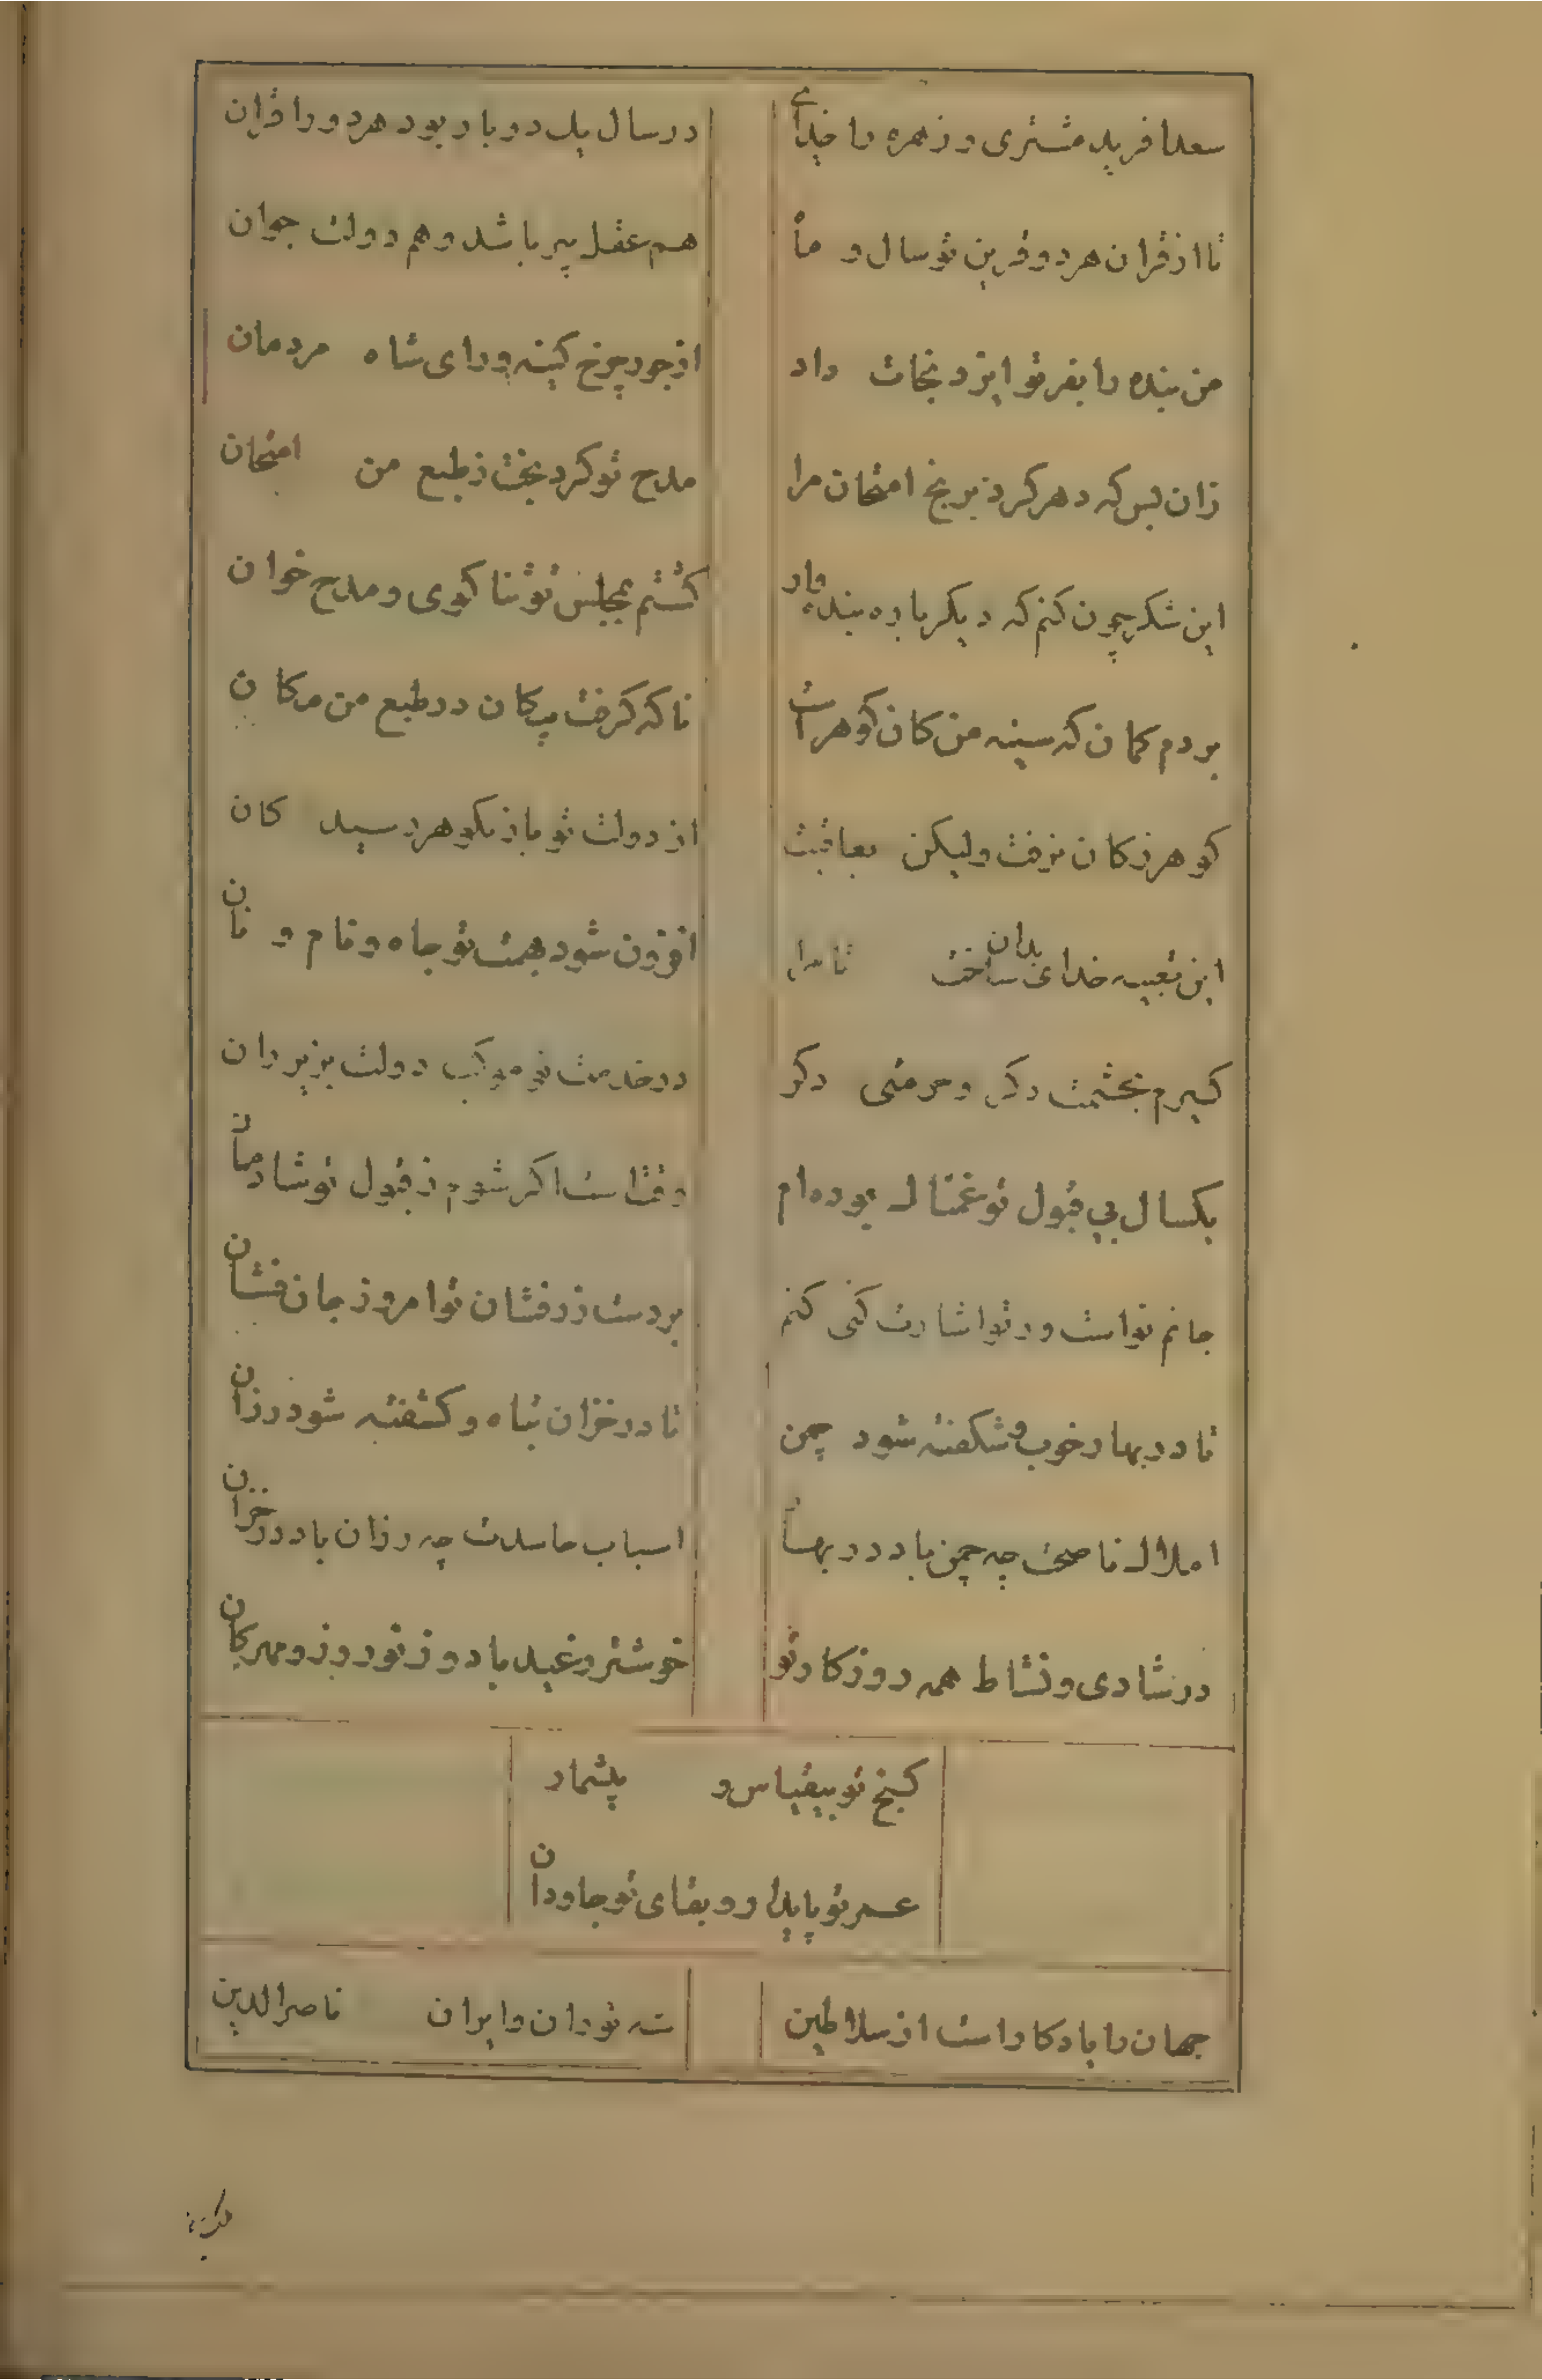 سعد افرید مشتری و زهره را خدای
در سال یک دو بار بود هر دو را قران
تا از قران هر دو قرین تو سال و ماه
هم عقل پیر باشد و هم دولت جوان
من بنده را بفر تو ایزد نجات داد
از جور چرخ کینه ور ای شاه مردمان
زان پس که دهر کرد برنج امتحان مرا
مدح تو کرد بخت ز طبع من امتحان
این شکر چون کنم که دیگر باره بنده وار
کشتم بمجلس تو ثنا کوی و مدح خوان
بردم کمان که سینه من کان کوهر است
ناکه کرفت پیکان در طبع من مکان
کوهر ز کان نرفت ولیکن بعاقبت
از دولت تو باز بکوهر رسید کان
این تعبیه خدای بدان ساخت تا مرا
افزون شود بهمت تو جاه و نام و نان
کیرم بحشمت دکر و حرمتی دکر
در خدمت تو موکب دولت بزیر ران
یکسال بی قبول تو غمناک بوده‌ام
وقت است اکر شوم ز قبول تو شادمان
جانم تراست ور تو اشارت کنی کنم
بر دست زرفشان تو امروز جان فشان
تا در بهار خوب و شکفته شود چمن
تا در خزان تباه و کشفته شود رزان
املاک ناصحت چه چمن باد در بهار
اسباب حاسدت چه رزان باد در خزان
در شادی و نشاط همه روز کار تو
خوشتر ز عید باد و ز نوروز و مهرکان
کنج تو بیقیاس و بیشمار
عمر تو پایدار و بقای تو جاودان
جهان را یادکار است از سلاطین
شه توران و ایران ناصرالدین